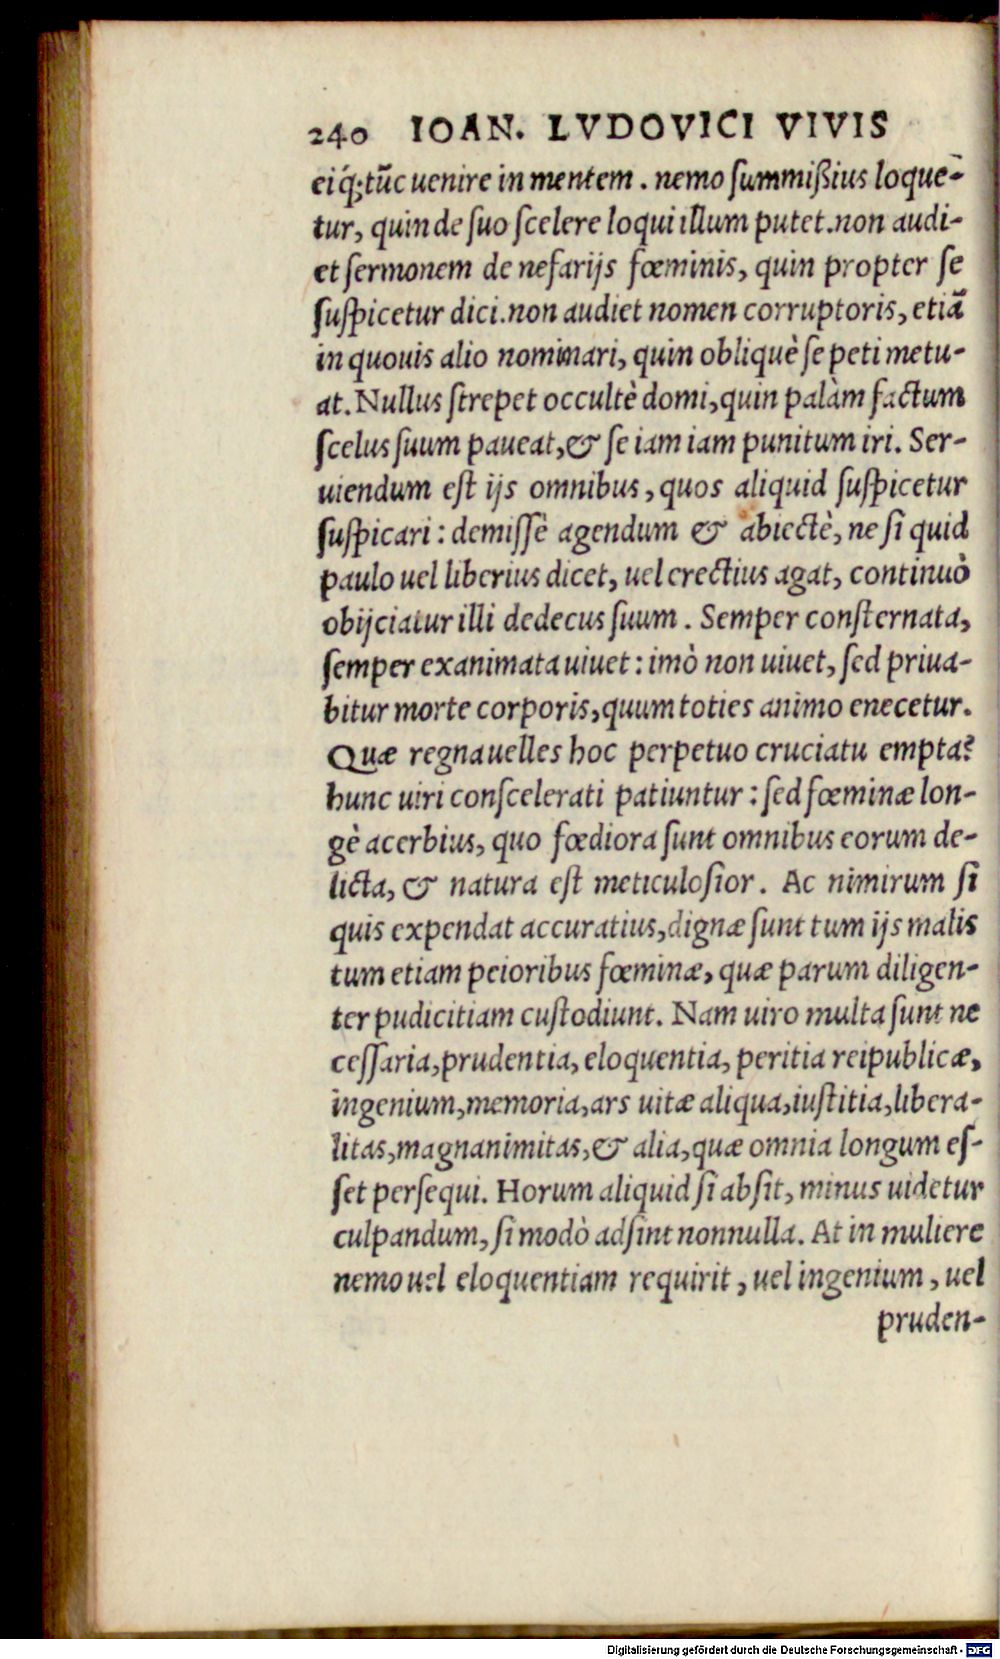 240 IOAN. LVDOVICI VIVIS
ei q́; tũc uenire in mentem. nemo ſummißius loquē-
tur, quin de ſuo ſcelere loqui illum putet. non audi-
et ſermonem de nefarijs fœminis, quin propter ſe
ſuſpicetur dici. non audiet nomen corruptoris, etiã
in quouis alio nominari, quin obliquè ſe peti metu-
at. Nullus ſtrepet occultè domi, quin palàm factum
ſcelus ſuum paueat, & ſe iam iam punitum iri. Ser-
uiendum eſt ijs omnibus, quos aliquid ſuſpicetur
ſuſpicari: demiſſè agendum & abiectè, ne ſi quid
paulo uel liberius dicet, uel erectius agat, continuò
obijciatur illi dedecus ſuum. Semper conſternata,
ſemper exanimata uiuet: imò non uiuet, ſed priua-
bitur morte corporis, quum toties animo enecetur.
Quæ regna uelles hoc perpetuo cruciatu empta?
hunc uiri conſcelerati patiuntur: ſed fœminæ lon-
gè acerbius, quo fœdiora ſunt omnibus eorum de-
licta, & natura eſt meticuloſior. Ac nimirum ſi
quis expendat accuratius, dignæ ſunt tum ijs malis
tum etiam peioribus fœminæ, quæ parum diligen-
ter pudicitiam cuſtodiunt. Nam uiro multa ſunt ne
ceſſaria, prudentia, eloquentia, peritia reipublicæ,
ingenium, memoria, ars uitæ aliqua, iuſtitia, libera-
litas, magnanimitas, & alia, quæ omnia longum eſ-
ſet perſequi. Horum aliquid ſi abſit, minus uidetur
culpandum, ſi modò adſint nonnulla. At in muliere
nemo uel eloquentiam requirit, uel ingenium, uel
pruden-
Digitalisierung gefördert durch die Deutsche Forschungsgemeinschaft - DFG